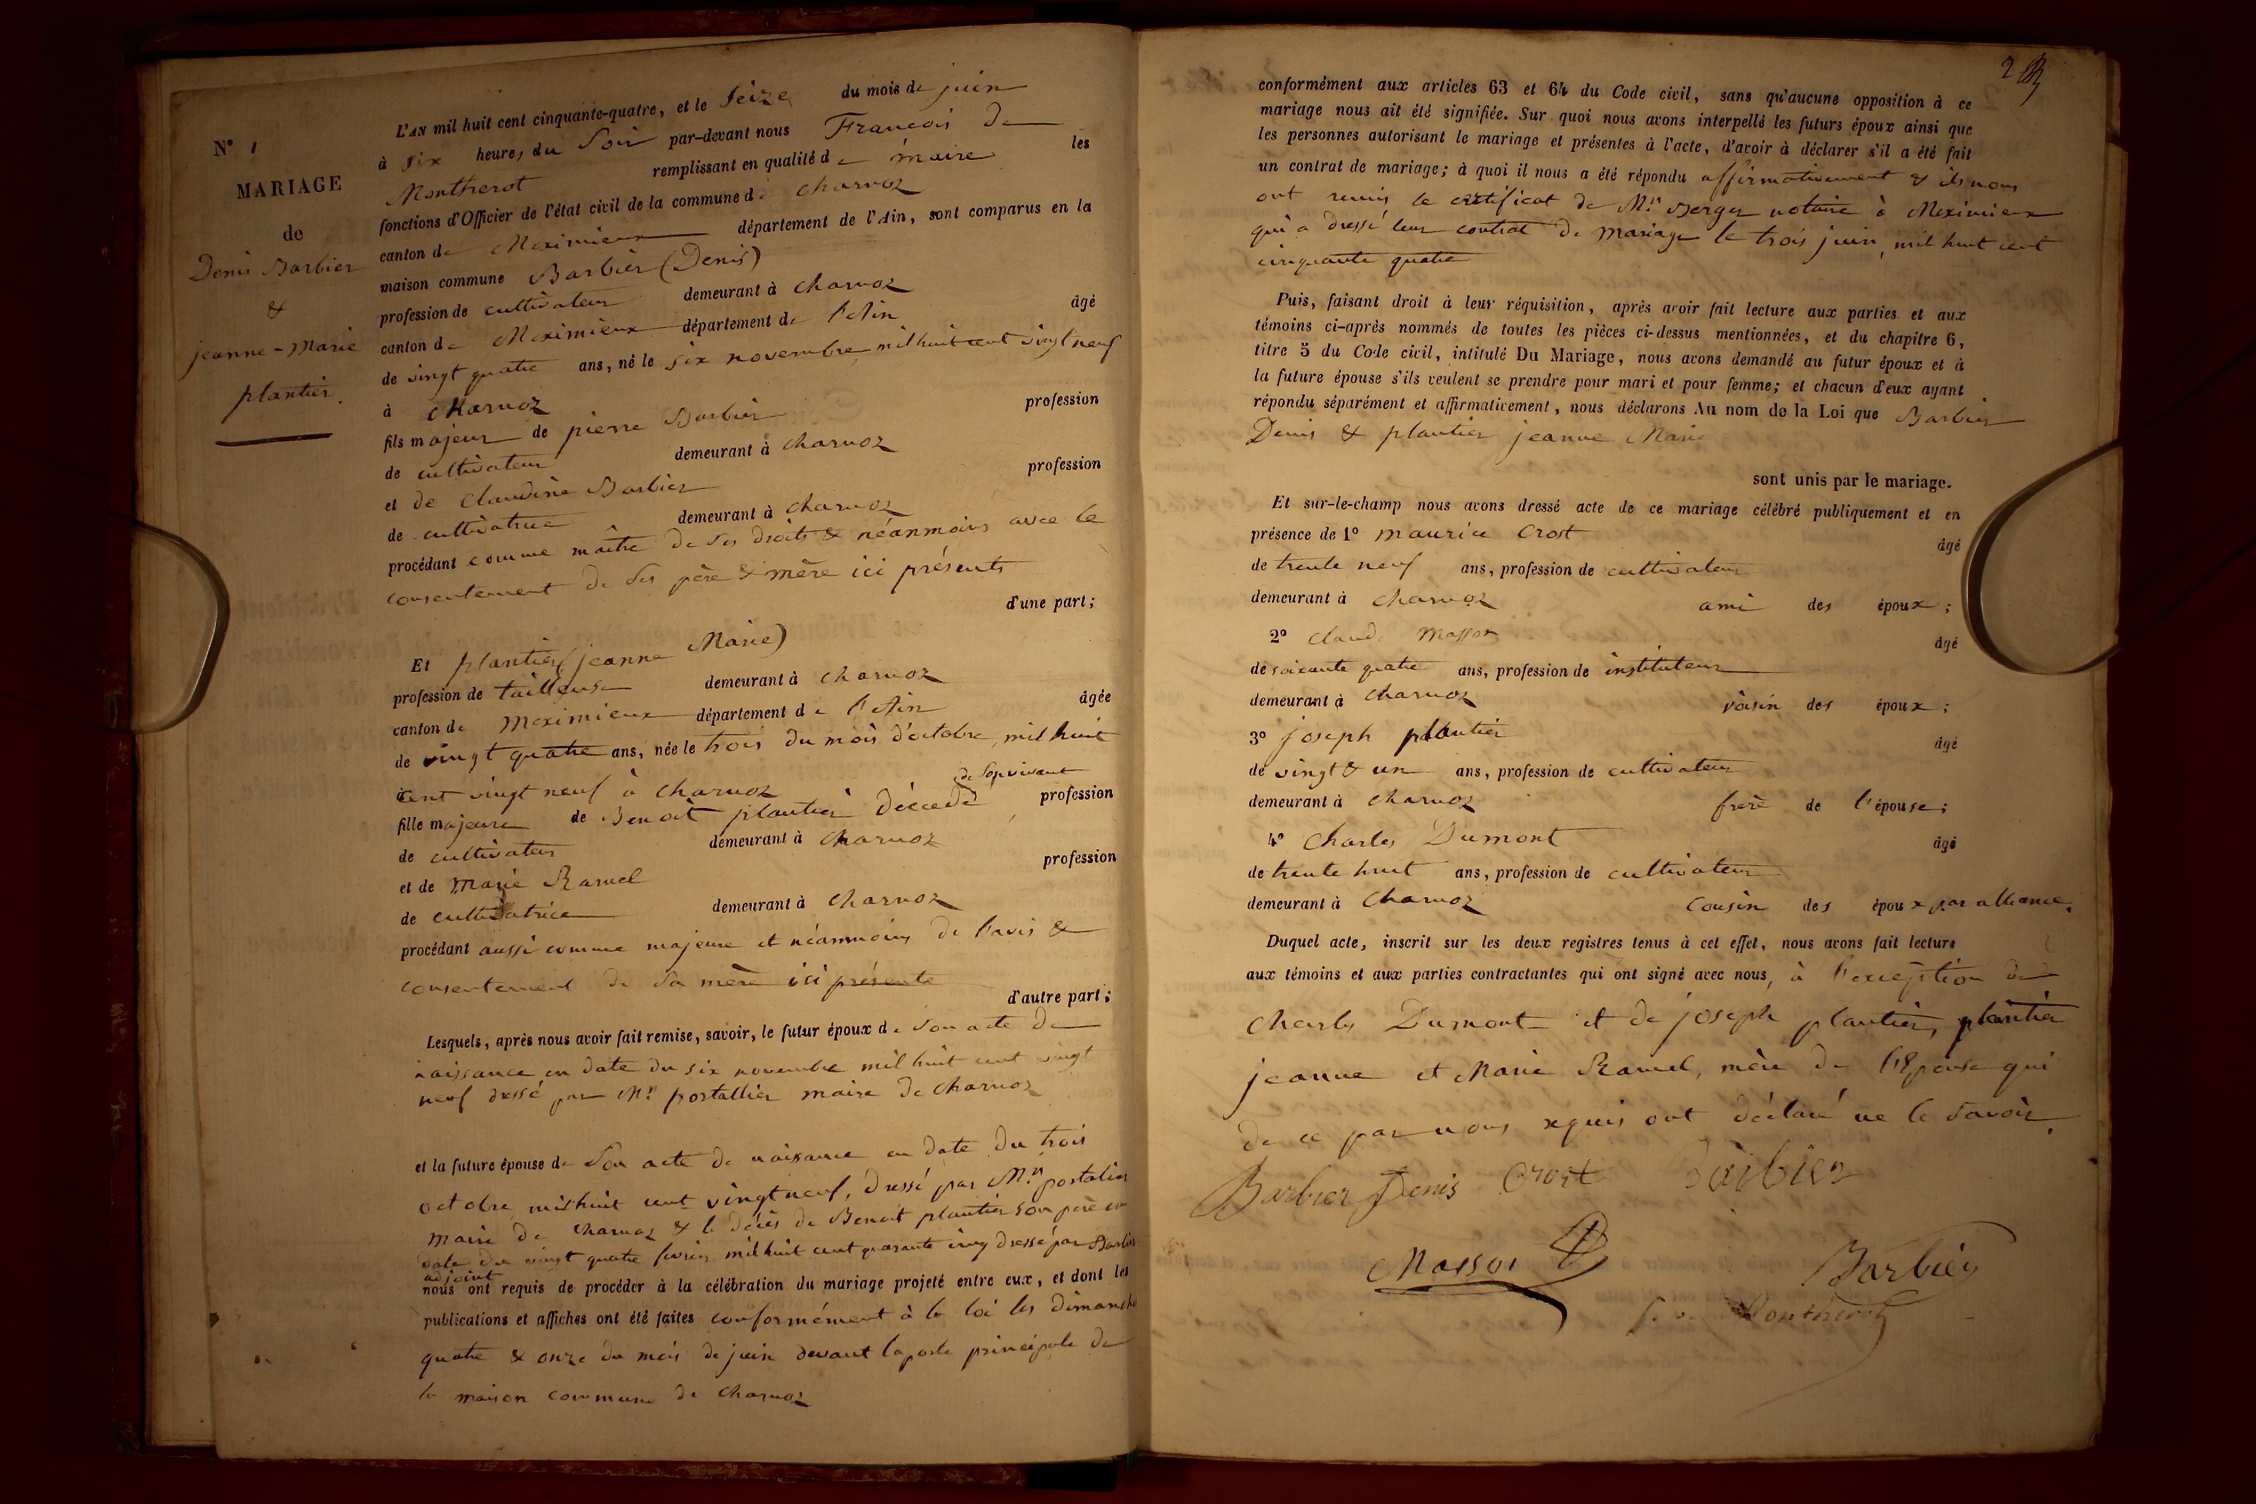 N° 1
MARIAGE
de
Denis Barbier
&
jeanne-Marie
plantier.
L'AN mil huit cent cinquante-quatre, et le Seize du mois de juin
à six heures du Soir par-devant nous Francois De
Montherot remplissant en qualité de maire les
fonctions d'Officier de l'état civil de la commune de charnoz
canton de Meximieux département de l'Ain, sont comparus en la
maison commune Barbier (Denis)
profession de cultivateur demeurant à charnoz
canton de Meximieux département de l'Ain âgé
de vingt quatre ans, né le six novembre mil huit cent vingt neuf
à charnoz
fils majeur de pierre Barbier profession
de cultivateur demeurant à charnoz
et de Claudine Barbier profession
de cultivatrice demeurant à charnoz
procédant comme maître de ses droits & néanmoins avec le
consentement de ses père & mère ici présents
d'une part;
Et plantier (jeanne Marie)
profession de tailleuse demeurant à charnoz
canton de Meximieux département de l'Ain âgée
de vingt quatre ans, née le trois du mois d'octobre mil huit
cent vingt neuf à charnoz
fille majeure de Benoit plantier décédé de Son vivant profession
de cultivateur demeurant à charnoz
et de Marie Ramel profession
de cultivatrice demeurant à charnoz
procédant aussi comme majeure et néanmoins de l'avis &
consentement de sa mère ici présente
d'autre part;
Lesquels, après nous avoir fait remise, savoir, le futur époux de son acte de
naissance en date du six novembre mil huit cent vingt
neuf dressé par Mr portallier maire de charnoz
et la future épouse de Son acte de naissance en date du trois
octobre mil huit cent vingt neuf, dressé par Mr. portalier
maire de charnoz & le décès de Benoit plantier son père en
date du vingt quatre fevrier mil huit cent quarante cinq dressé par Barbier
adjoint
nous ont requis de procéder à la célébration du mariage projeté entre eux, et dont les
publications et affiches ont été faites conformément à la loi les dimanche
quatre & onze du mois de juin devant la porte principale de
la maison commune de charnoz
2
conformément aux articles 63 et 64 du Code civil, sans qu'aucune opposition à ce
mariage nous ait été signifiée. Sur quoi nous avons interpellé les futurs époux ainsi que
les personnes autorisant le mariage et présentes à l'acte, d'avoir à déclarer s'il a été fait
un contrat de mariage; à quoi il nous a été répondu affirmativement & ils nous
ont remis le certificat de Mr Berger notaire à Meximieux
qui a dressé leur contrat de mariage le trois juin mil huit cent
cinquante quatre
Puis, faisant droit à leur réquisition, après avoir fait lecture aux parties et aux
témoins ci-après nommés de toutes les pièces ci-dessus mentionnées, et du chapitre 6,
titre 5 du Code civil, intitulé Du Mariage, nous avons demandé au futur époux et à
la future épouse s'ils veulent se prendre pour mari et pour femme; et chacun d'eux ayant
répondu séparément et affirmativement, nous déclarons Au nom de la Loi que Barbier
Denis & plantier jeanne Marie
sont unis par le mariage.
Et sur-le-champ nous avons dressé acte de ce mariage célébré publiquement et en
présence de 1° maurice Crost âgé
de trente neuf ans, profession de cultivateur
demeurant à charnoz ami des époux;
2° Claude Masson âgé
de soixante quatre ans, profession de instituteur
demeurant à charnoz voisin des époux;
3° joseph plantier âgé
de vingt & un ans, profession de cultivateur
demeurant à charnoz frère de l'épouse;
4° Charles Dumont âgé
de trente huit ans, profession de cultivateur
demeurant à charnoz cousin des époux par alliance.
Duquel acte, inscrit sur les deux registres tenus à cet effet, nous avons fait lecture
aux témoins et aux parties contractantes qui ont signé avec nous, à l'exception de
Charles Dumont et de joseph plantier, plantier
jeanne et Marie Ramel, mère de l'épouse qui
de ce par nous requis ont déclaré ne le savoir.
Barbier Denis Crost Barbier
Masson Barbier
Montherot